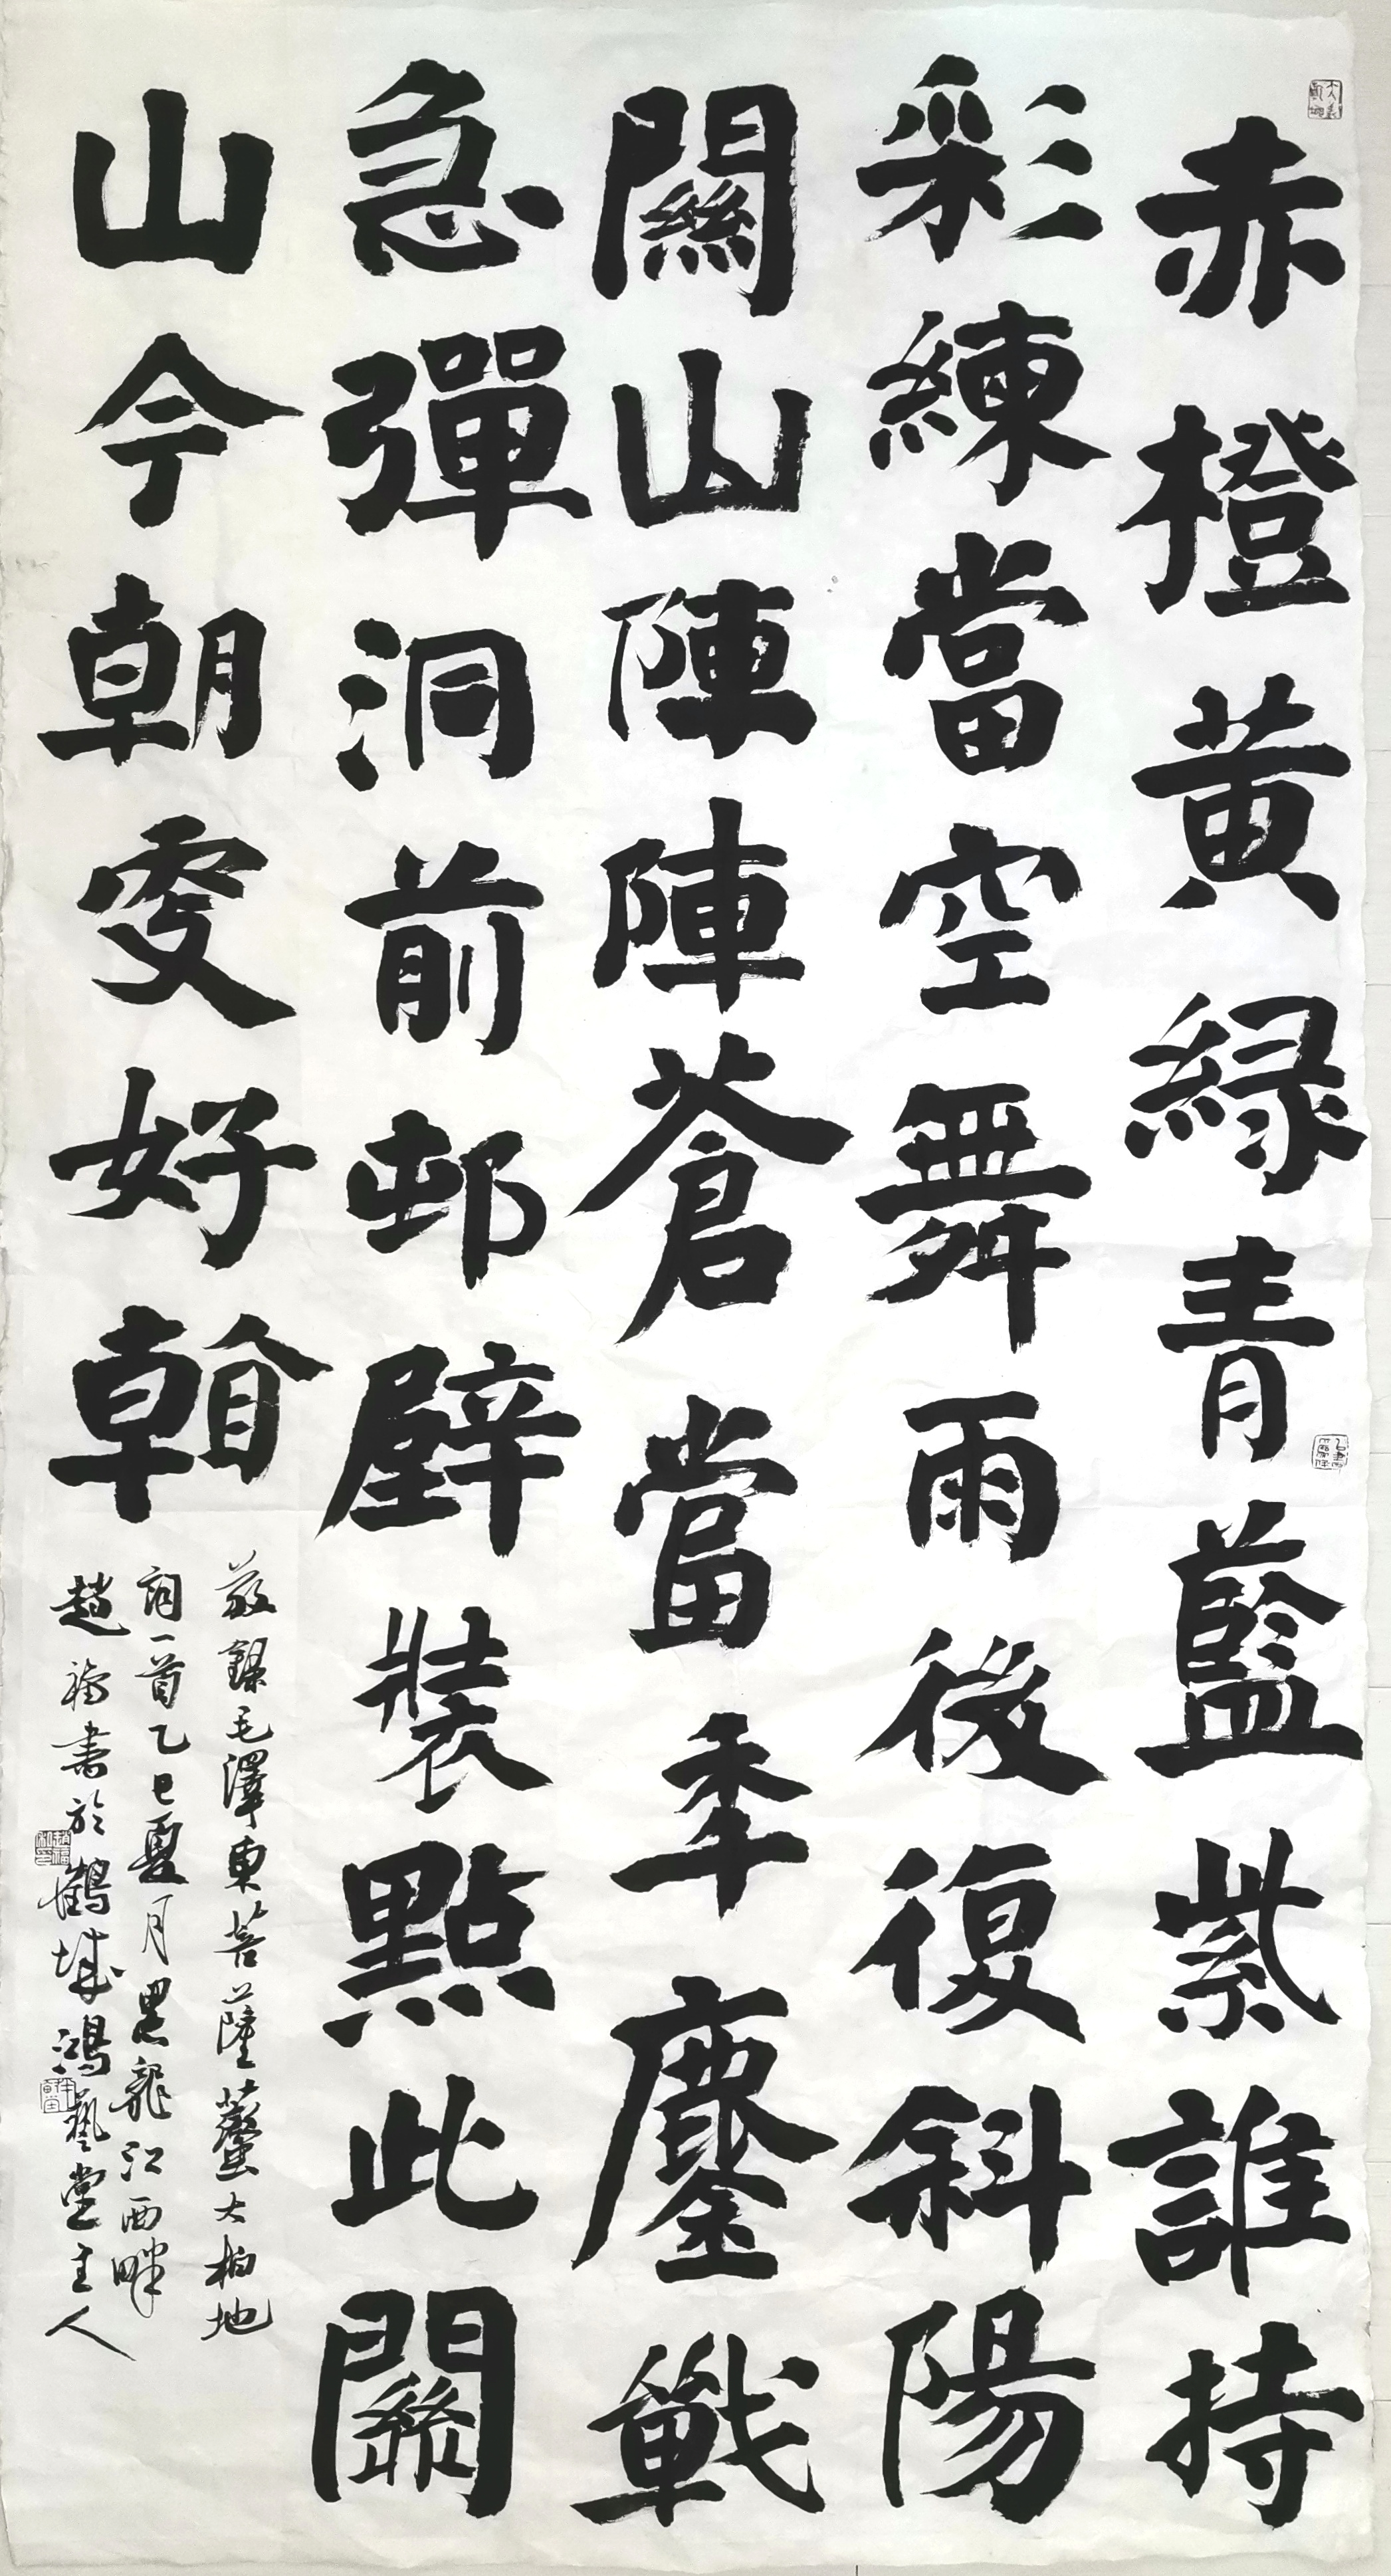 赤橙黄緑青藍紫誰持
彩練當空舞雨後復斜陽
關山陣陣蒼當年鏖戰
急彈洞前邨壁裝點此關
山今朝更好看
敬録毛澤東菩薩蠻大柏地
詞一首乙巳夏月黑龍江西畔
趙福書於鶴城鴻藝堂主人